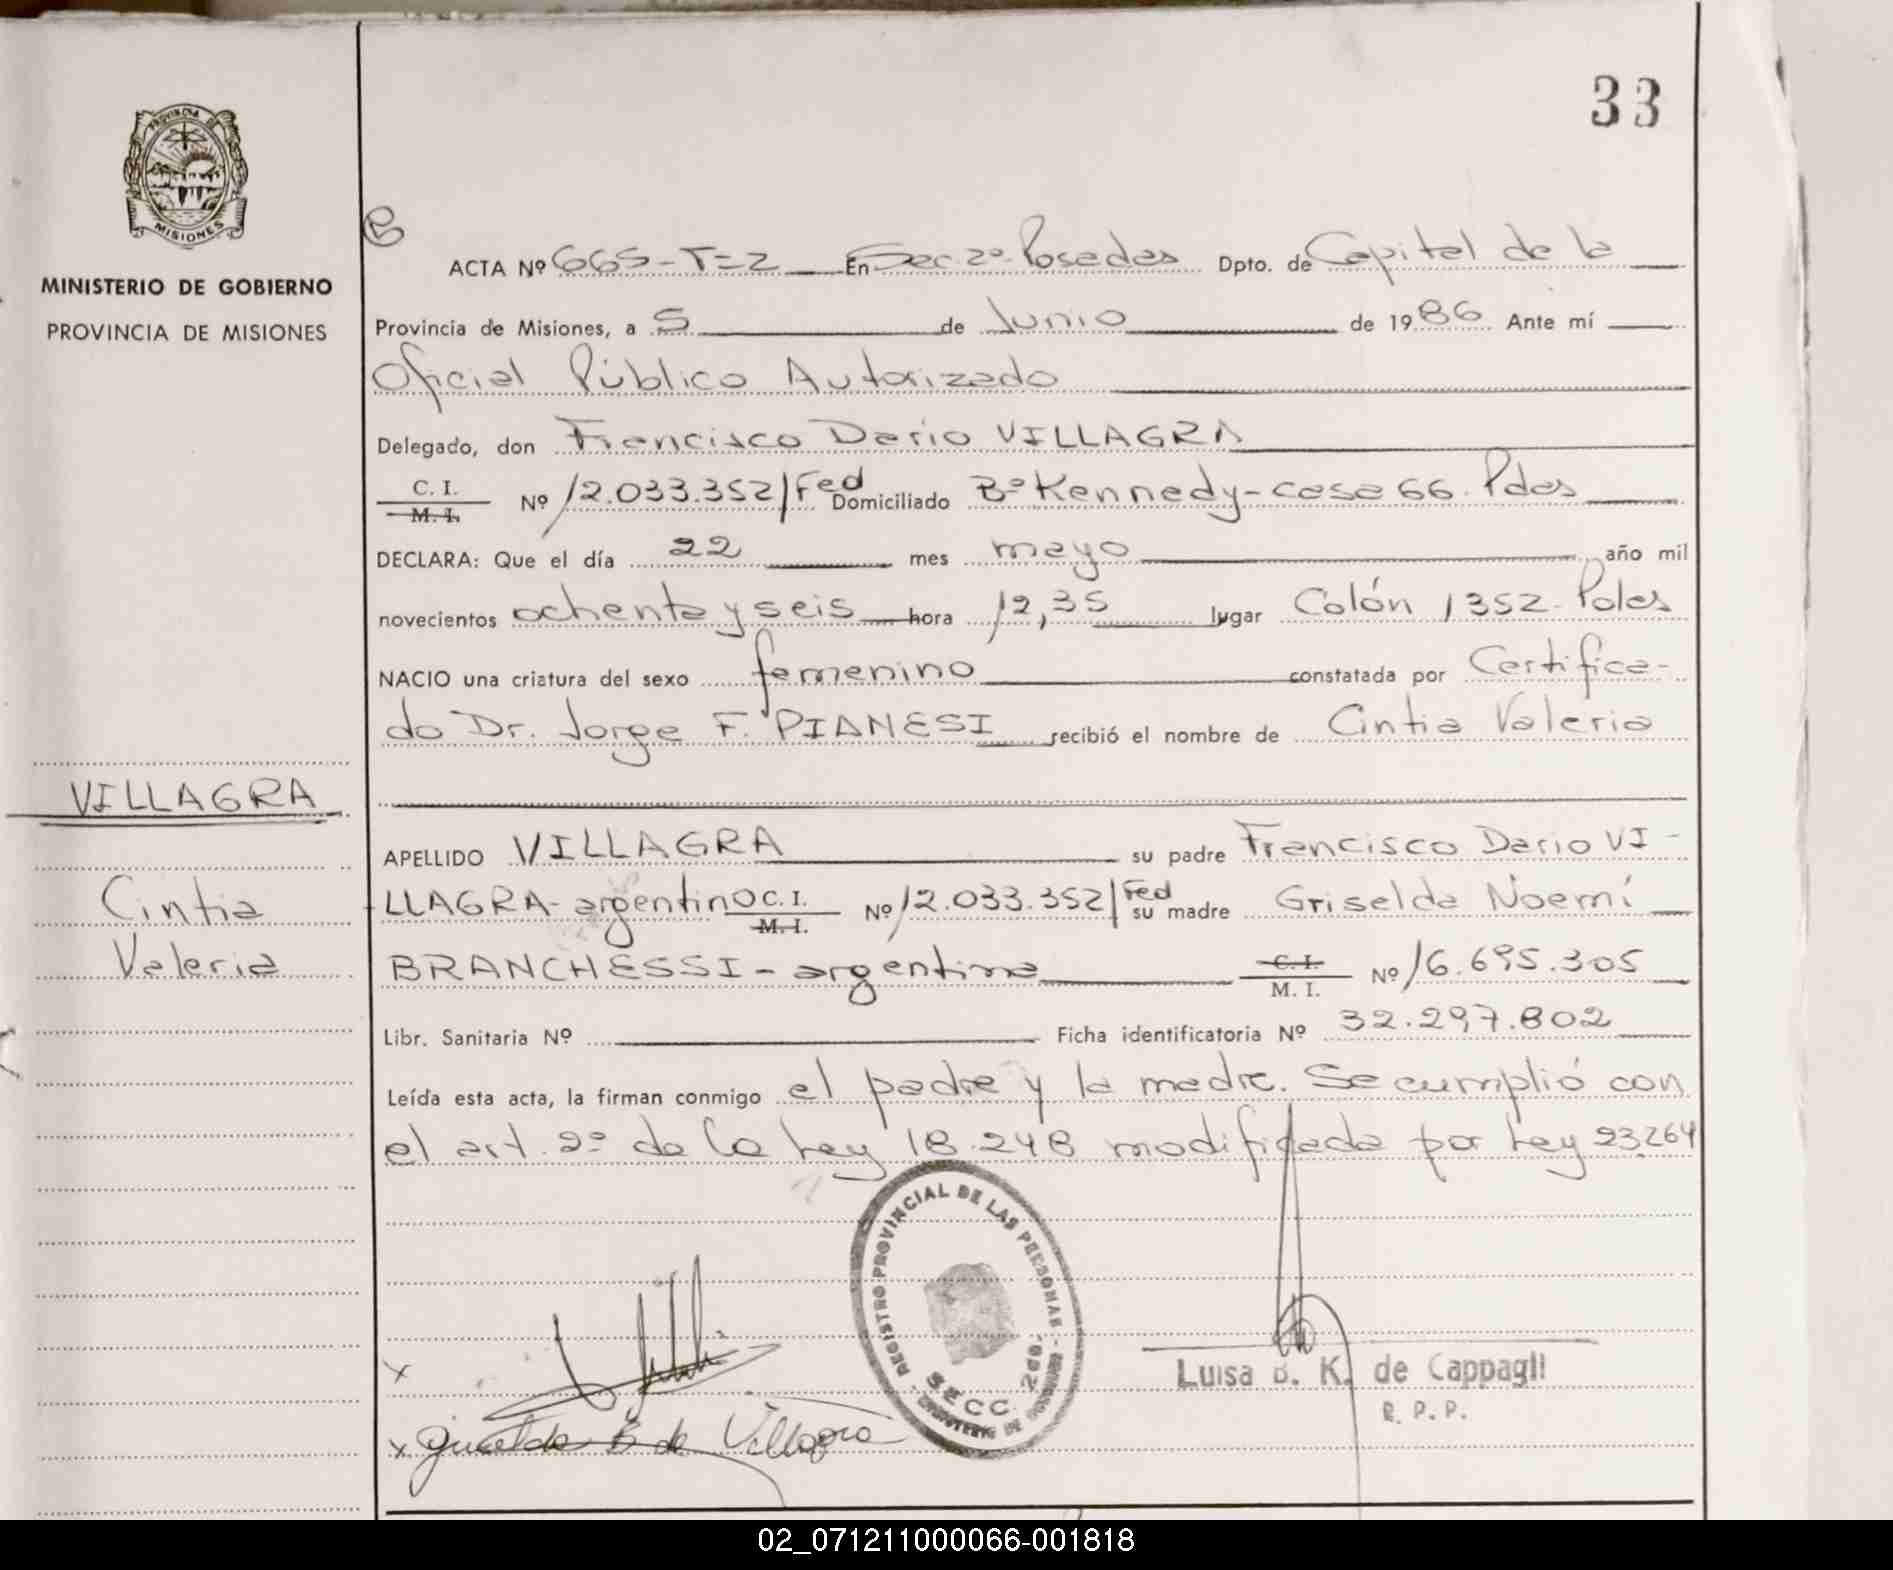 33
PROVINCIA DE
MISIONES
MINISTERIO DE GOBIERNO
PROVINCIA DE MISIONES
ACTA Nº 665-T=2 En Sec. 2º. Posadas Dpto. de Capital de la
Provincia de Misiones, a 5 de Junio de 1986 Ante mí
Oficial Público Autorizado
Delegado, don Francisco Dario VILLAGRA
C. I.
M. I.
Nº 12.033.352/Fed Domiciliado Bº Kennedy-casa 66. Pdas
DECLARA: Que el día 22 mes mayo año mil
novecientos ochenta y seis hora 12,35 lugar Colón 1352. Pdas
NACIO una criatura del sexo femenino constatada por Certifica-
do Dr. Jorge F. PIANESI recibió el nombre de Cintia Valeria
VILLAGRA
Cintia
Valeria
APELLIDO VILLAGRA su padre Francisco Dario VI-
LLAGRA-argentino C. I.
M. I.
Nº 12.033.352/Fed su madre Griselda Noemí
BRANCHESSI-argentina C. I.
M. I.
Nº 16.695.305
Libr. Sanitaria Nº Ficha identificatoria Nº 32.297.802
Leída esta acta, la firman conmigo el padre y la madre. Se cumplió con
el art. 2º de la Ley 18.248 modificada por Ley 23.264
REGISTRO PROVINCIAL DE LAS PERSONAS
SECC. 2da.
MINISTERIO DE GOBIERNO
x
x Griselda B de Villagra
Luisa B. K. de Cappagli
R. P. P.
02_071211000066-001818